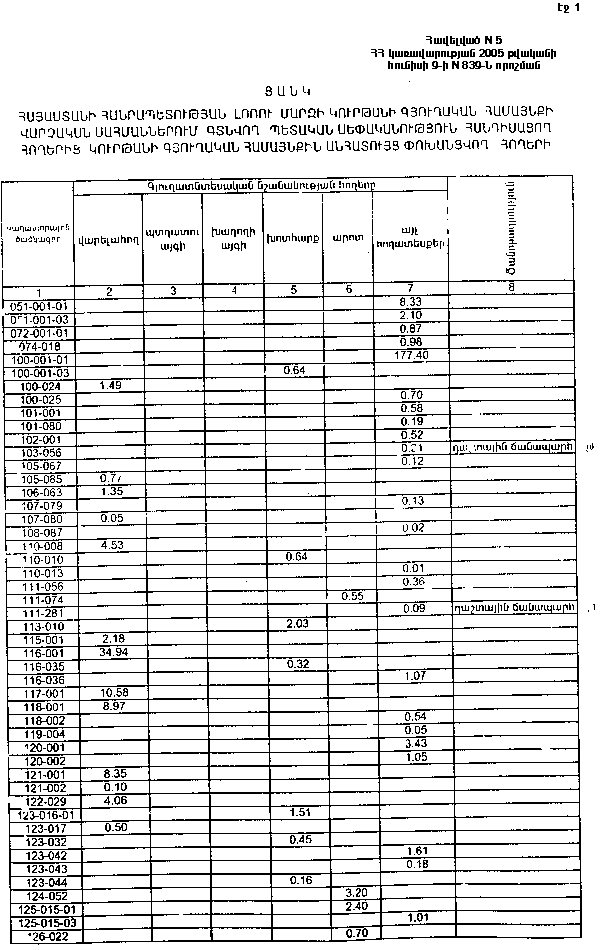 Էջ 1
Հավելված N 5
ՀՀ կառավարության 2005 թվականի
հունիսի 9-ի N 839-Ն որոշման
ՑԱՆԿ
ՀԱՅԱՍՏԱՆԻ ՀԱՆՐԱՊԵՏՈՒԹՅԱՆ ԼՈՌՈՒ ՄԱՐԶԻ ԿՈՒՐԹԱՆԻ ԳՅՈՒՂԱԿԱՆ ՀԱՄԱՅՆՔԻ
ՎԱՐՉԱԿԱՆ ՍԱՀՄԱՆՆԵՐՈՒՄ ԳՏՆՎՈՂ ՊԵՏԱԿԱՆ ՍԵՓԱԿԱՆՈՒԹՅՈՒՆ ՀԱՆԴԻՍԱՑՈՂ
ՀՈՂԵՐԻՑ ԿՈՒՐԹԱՆԻ ԳՅՈՒՂԱԿԱՆ ՀԱՄԱՅՆՔԻՆ ԱՆՀԱՏՈՒՅՑ ՓՈԽԱՆՑՎՈՂ ՀՈՂԵՐԻ
Կադաստրային ծածկագրը
Գյուղատնտեսական նշանակության հողերը
Ծանոթագրություն
վարելահող պտղատու այգի խաղողի այգի խոտհարք արոտ այլ հողատեսքեր
1 2 3 4 5 6 7 8
051-001-01 8.33
071-001-03 2.10
072-001-01 0.87
074-018 0.98
100-001-01 177.40
100-001-03 0.64
100-024 1.49
100-025 0.70
101-001 0.58
101-080 0.19
102-001 0.52
103-056 դաշտային ճանապարհ
105-067 0.12
105-085 0.77
106-063 1.35
107-079 0.13
107-080 0.05
108-087 0.02
110-008 4.53
110-010 0.64
110-013 0.01
111-056 0.36
111-074 0.55
111-281 0.09 դաշտային ճանապարհ
113-010 2.03
115-001 2.18
116-001 34.94
116-035 0.32
116-036 1.07
117-001 10.58
118-001 8.97
118-002 0.54
119-004 0.05
120-001 3.43
120-002 1.05
121-001 8.35
121-002 0.10
122-029 4.06
123-016-01 1.51
123-017 0.50
123-032 0.45
123-042 1.61
123-043 0.18
123-044 0.16
124-052 3.20
125-015-01 2.40
125-015-03 1.01
126-022 0.70